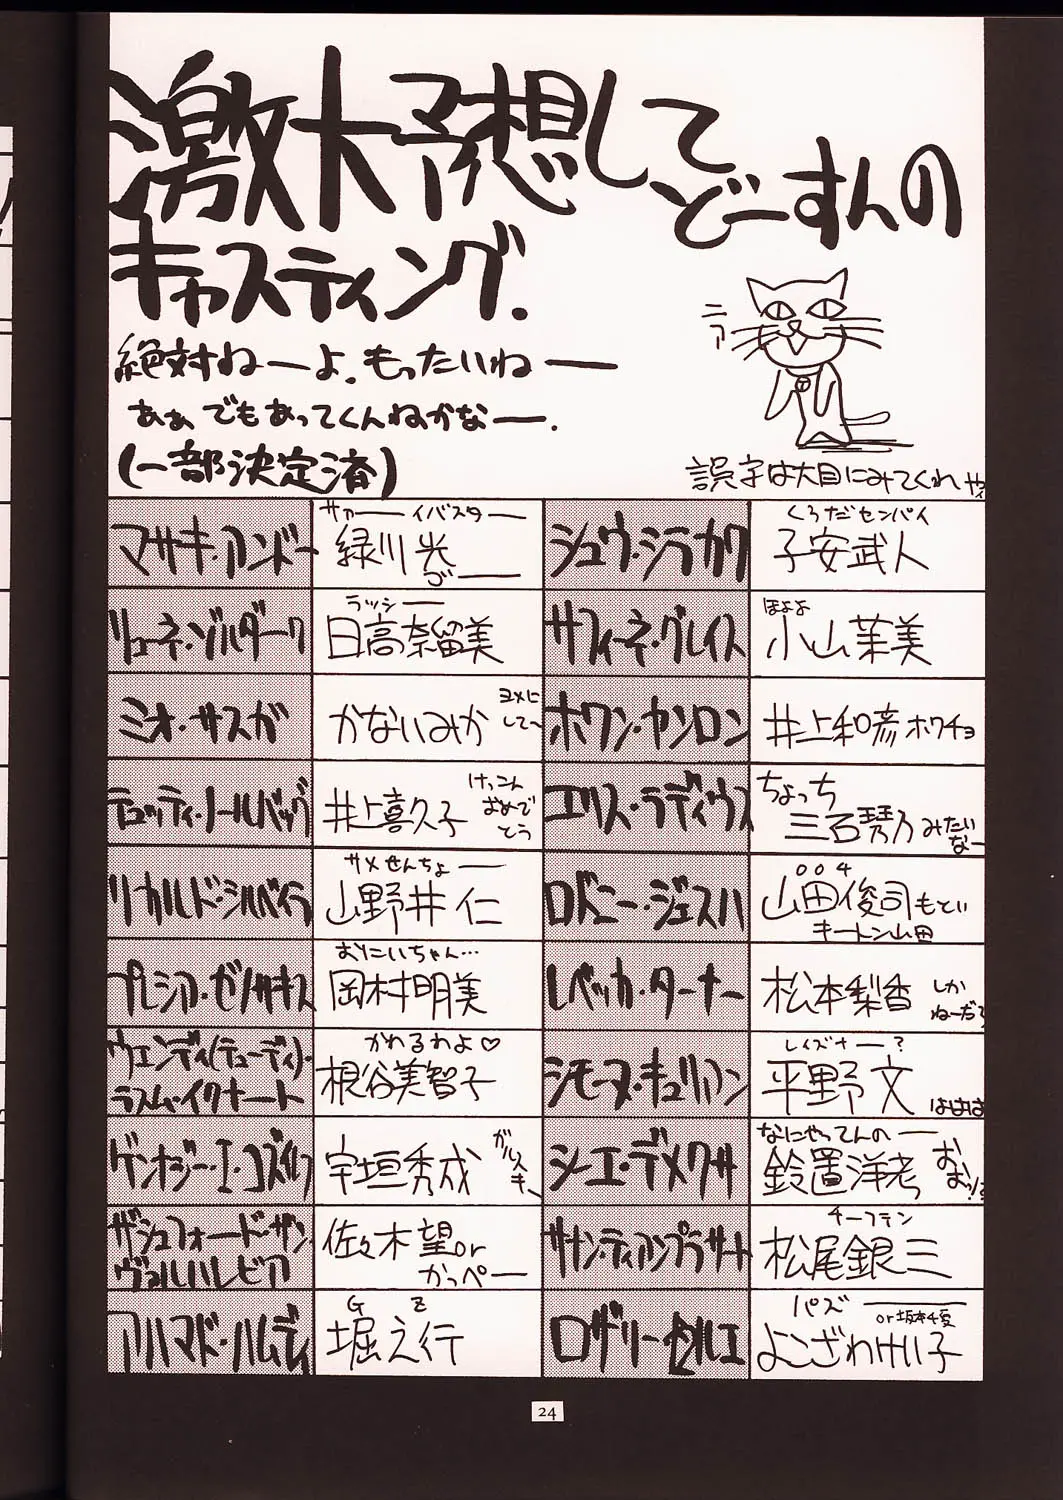 激大予想して
どーすんの
キャスティング.
絶対ねーよ.もったいねー
あぁ でもあってくんねぇかなー.
(一部決定済)
ニァ
誤字は大目にみてくれや
マサキ・アンドー
サァーーイバスターー
緑川光
ごーー
シュウ・シラカワ
くろだセンパイ
子安武人
リューネ・ゾルダーク
ラッシー
日高奈留美
サフィーネ・グレイス
ほよよ
小山茉美
ミオ・サスガ
かないみか
ヨメにして〜
ホワン・ヤンロン
井上和彦 ホウチョ
テュッティ・ノールバック
井上喜久子
けっこんおめでとう
エリス・ラディウス
ちょっち
三石琴乃 みたいなー
リカルド・シルベイラ
サメせんちょーー
山野井 仁
ロドニー・ジェスハ
004
山田俊司 もとい
キートン山田
プレシア・ゼノサキス
おにいちゃん…
岡村明美
レベッカ・ターナー
松本梨香 しかねーだろ
ウエンディ(テューディ)・
ラスム・イクナート
かわるわよ♡
根谷美智子
シモーヌ・キュリアン
レイズナー?
平野 文 ははは
ゲンオジー・I・コズイレフ
宇垣秀成
シーエ・デメクサ
なにやってんのー
鈴置洋孝
おおッ!?
ザシュフォード・ザン・
ヴァルハレビア
佐々木望or
かっぺー
サナン・ティアンプラサート
チーフテン
松尾銀三
アハマド・ハムディ
G Z
堀之行
ロザリー・セルエ
パズー
or 坂本千夏
よこざわけい子
24